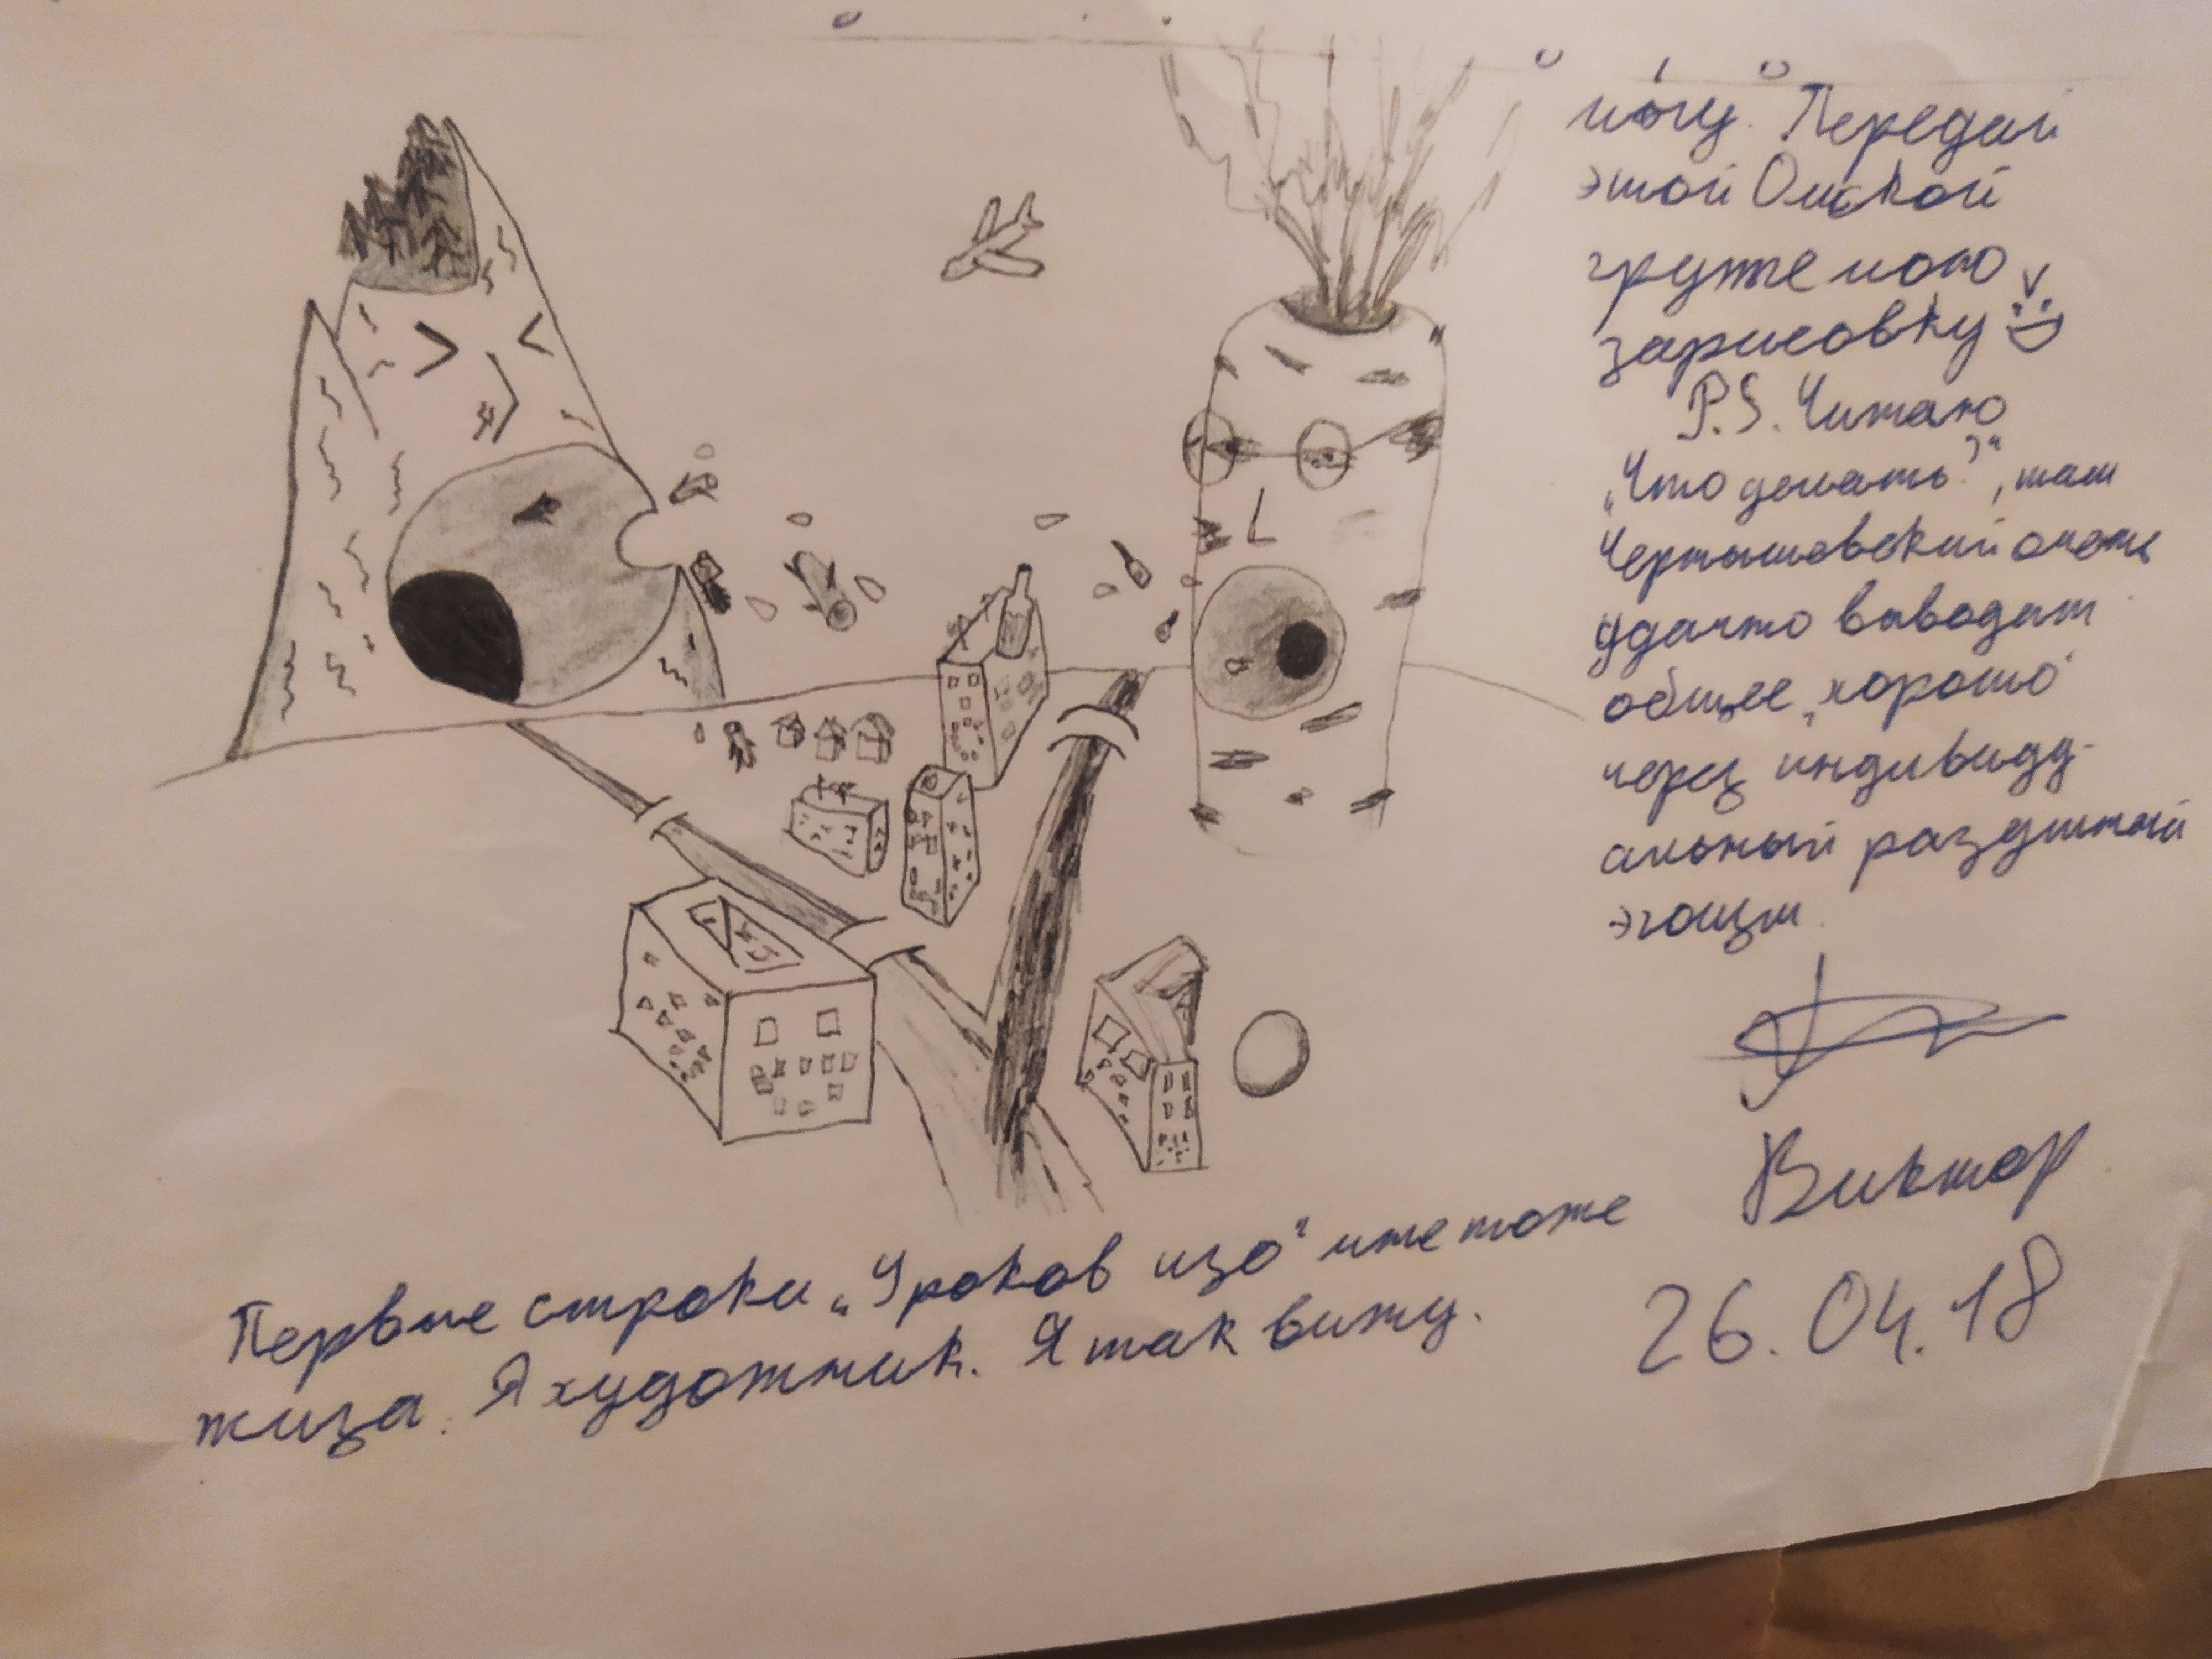 могу. Передай
этой Омской
груже мою
зарисовку
P.S. Читаю
„Что делать?“, там
Чернышевский очень
удачно выводит
общее „хорошо“
через индивиду-
альный раздутый
эгоизм.
Виктор
26.04.18
Первые строки „Уроков изо“ мне тоже
жиза. Я художник. Я так вижу.